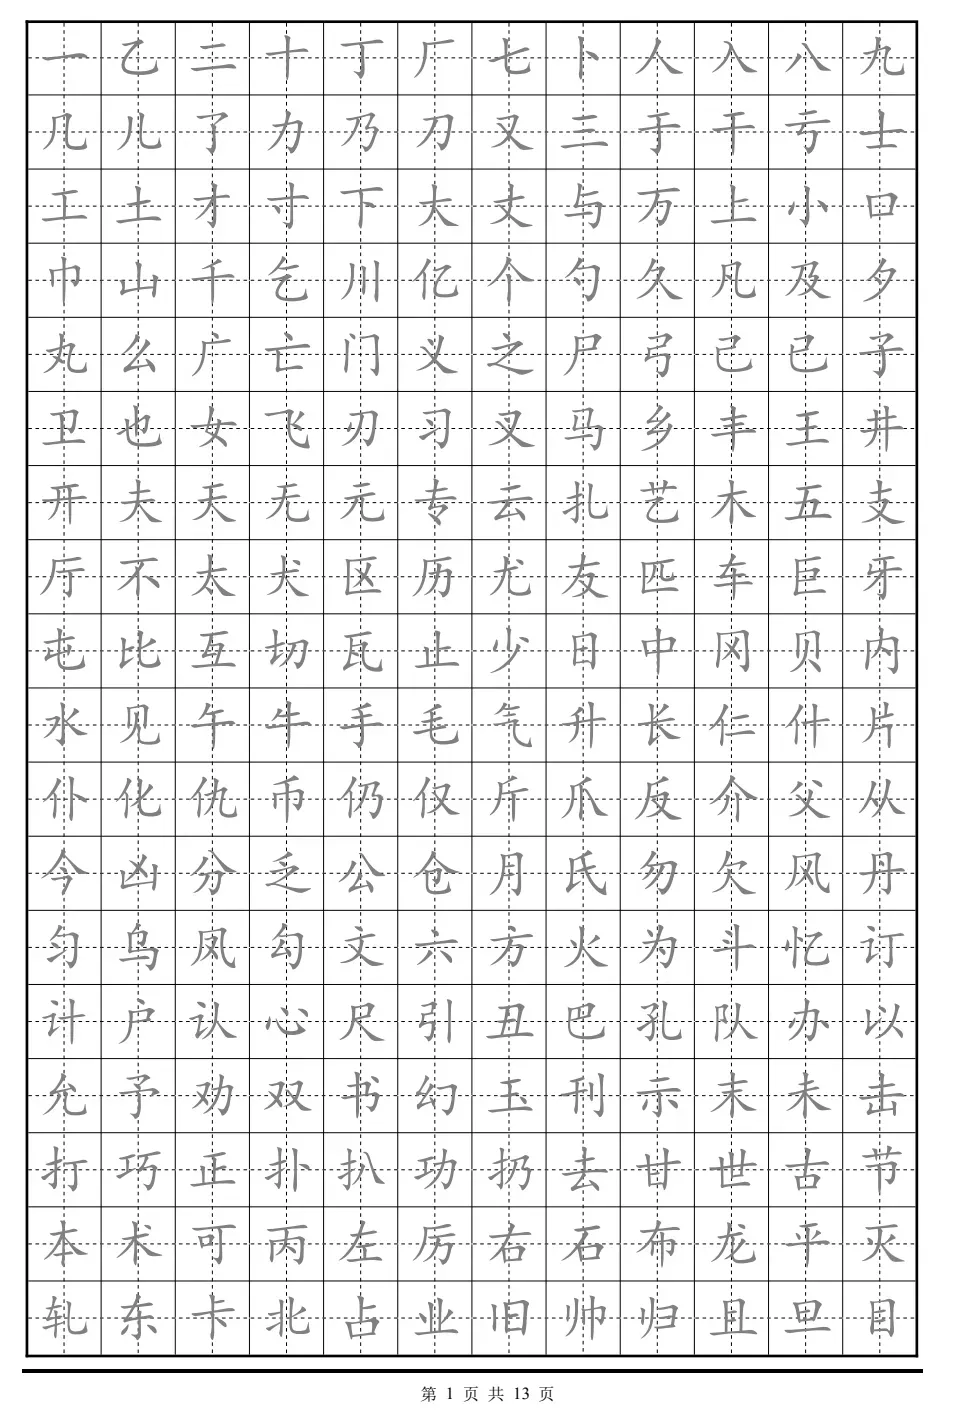 一乙二十丁厂七卜人入八九
几儿了力乃刀叉三于干亏士
工土才寸下大丈与万上小口
巾山千乞川亿个勺久凡及夕
丸么广亡门义之尸弓己已子
卫也女飞刃习叉马乡丰王井
开夫天无元专云扎艺木五支
厅不太犬区历尤友匹车巨牙
屯比互切瓦止少日中冈贝内
水见午牛手毛气升长仁什片
仆化仇币仍仅斤爪反介父从
今凶分乏公仓月氏勿欠风丹
匀乌凤勾文六方火为斗忆订
计户认心尺引丑巴孔队办以
允予劝双书幻玉刊示末未击
打巧正扑扒功扔去甘世古节
本术可丙左厉右石布龙平灭
轧东卡北占业旧帅归且旦目
第 1 页 共 13 页